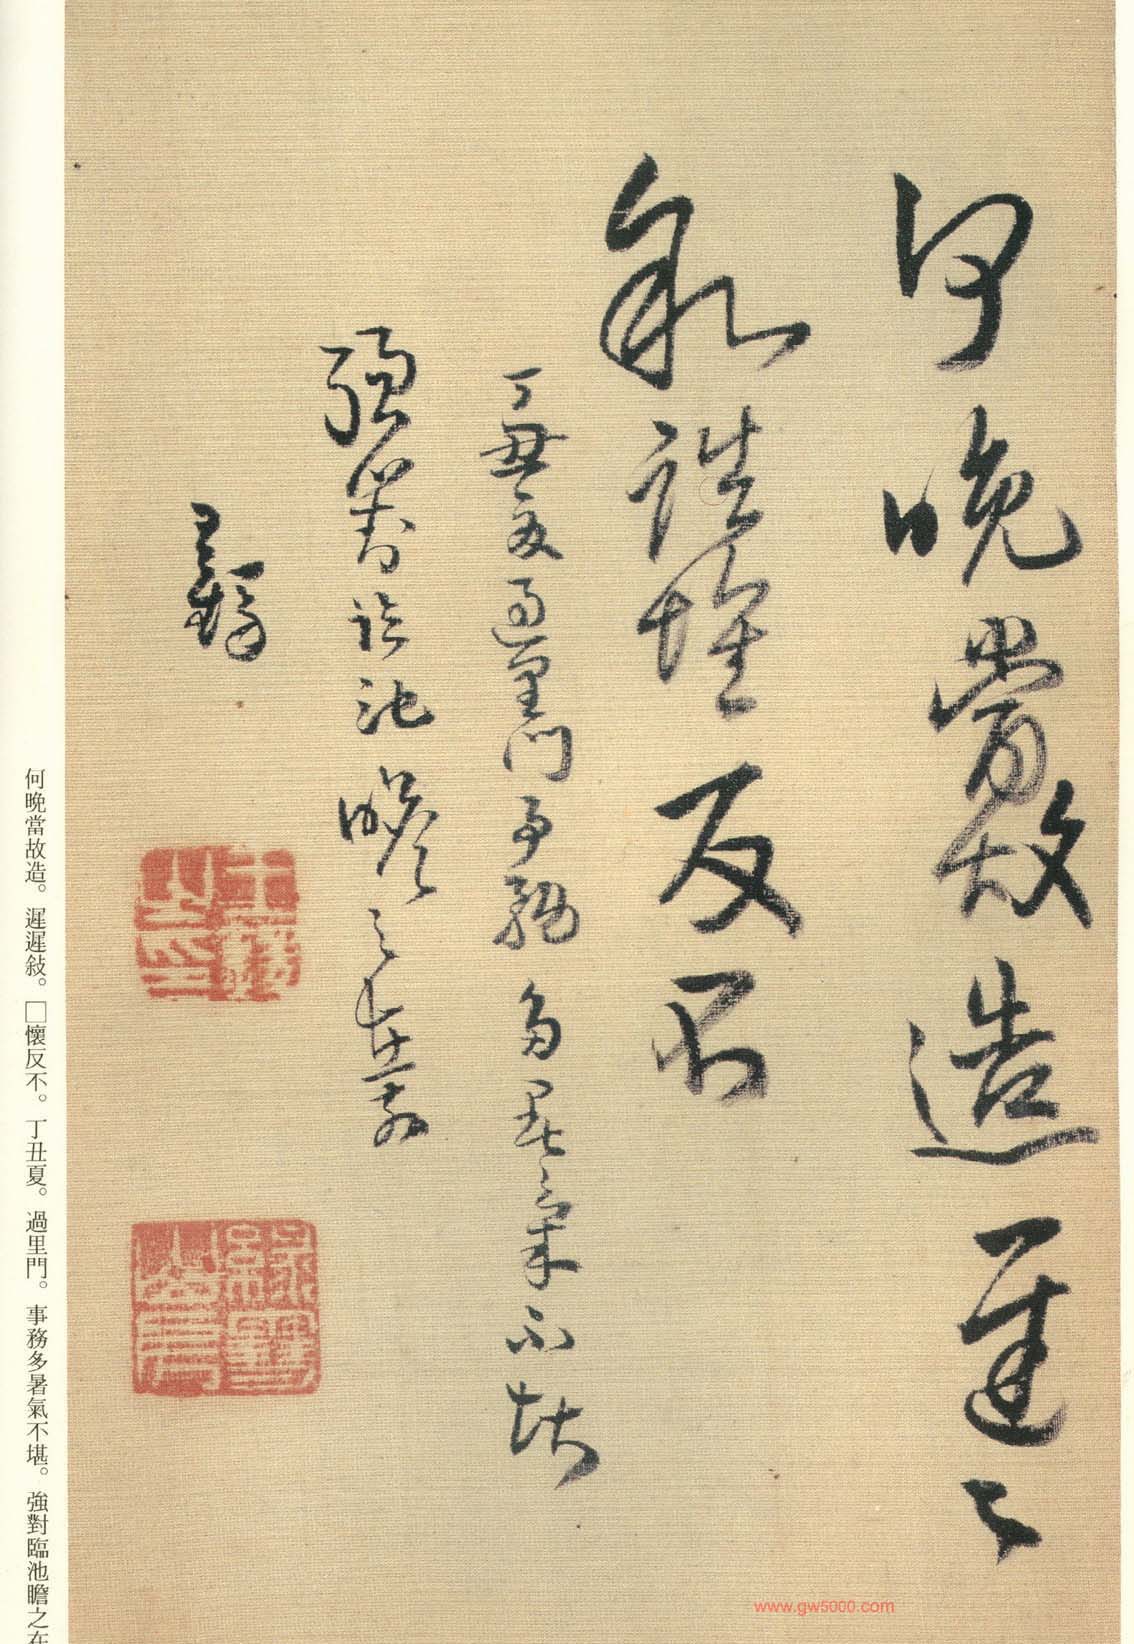 何晚當故造遲〻
敍詵懷反不
丁丑夏過里門事務多暑氣不堪
強對臨池瞻之在前
王鐸
王鐸之印
何晚當故造。遲遲敍。□懷反不。丁丑夏。過里門。事務多暑氣不堪。強對臨池瞻之在
www.gw5000.com